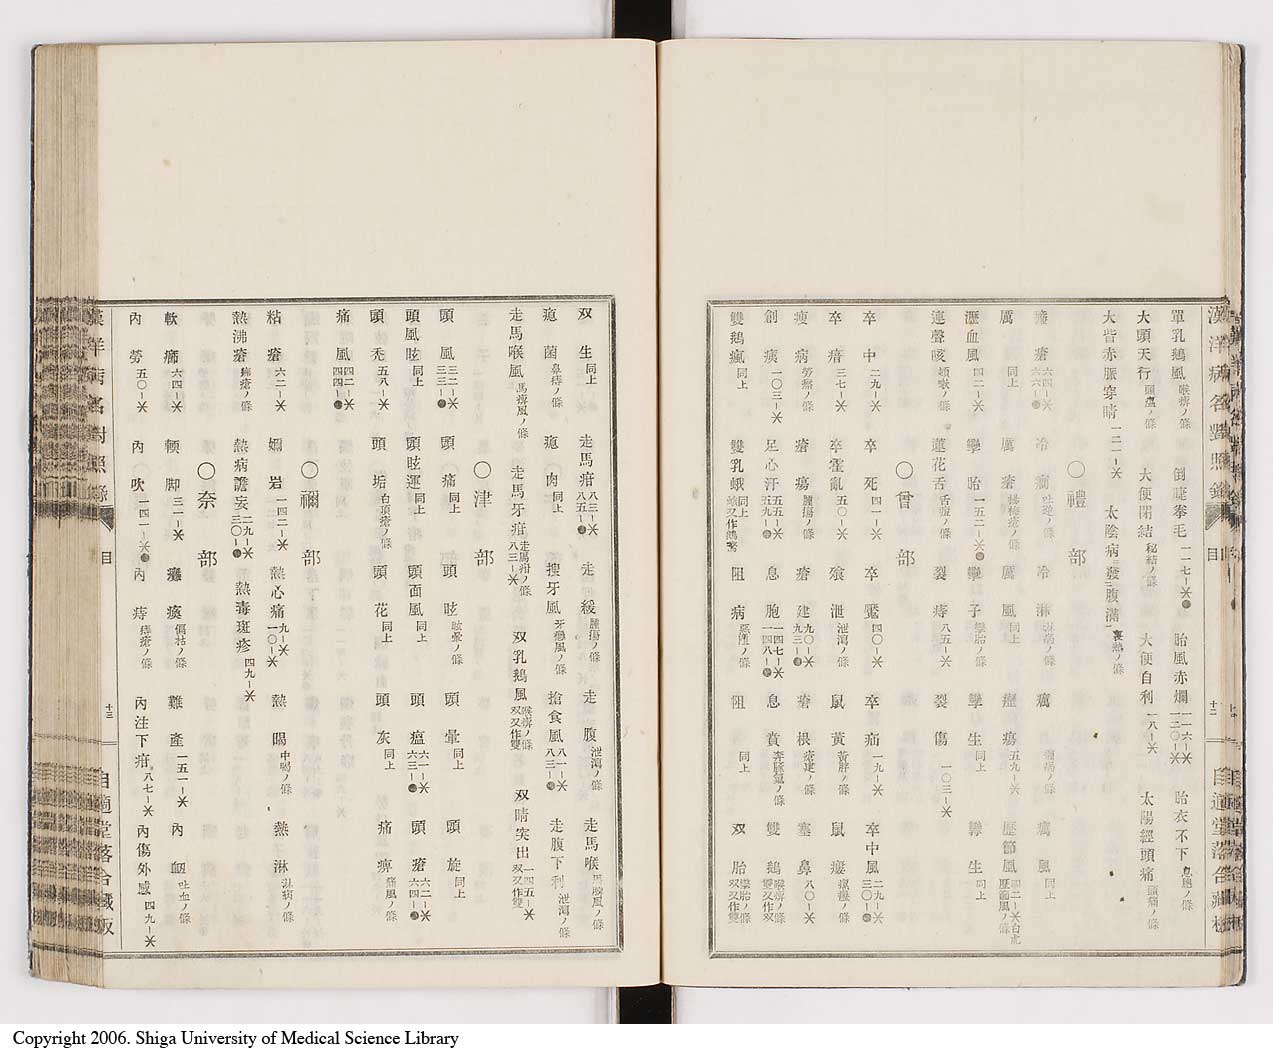 漢洋病名對照錄 目 十二 自適堂落合藏板
單乳鵝風 喉痹ノ條 倒睫拳毛 一一七-米 胎風赤爛 一一六-米 一二〇-米 胎衣不下 息胞ノ條
大頭天行 頭瘟ノ條 大便閉結 秘結ノ條 大便自利 一八-米 太陽經頭痛 頭痛ノ條
大眥赤脈穿睛 一二一-米 太陰病發腹滿 裏熱ノ條
〇禮部
癘瘡 冷瀉 吐逆ノ條 冷淋 淋病ノ條 癘 癘風 同上
厲 同上 厲瘡 楊梅瘡ノ條 厲風 同上 瘰瘍 五九-米 歷節風 歷節風ノ條
瀝血風 四二-米 攣胎 一五二-米 攣子 攣胎ノ條 攣生 同上 攣生 同上
連聲咳 頓嗽ノ條 蓮花舌 舌瘤ノ條 裂痔 八五-米 裂傷 一〇三-米
〇曾部
卒中 二九-米 卒死 四一-米 卒魘 四〇-米 卒疝 一九-米 卒中風 二九-米 三〇-
卒瘖 三七-米 卒霍亂 五〇-米 飧泄 泄瀉ノ條 鼠黃 黃胖ノ條 鼠瘻 瘰癧ノ條
瘦病 勞瘵ノ條 瘡瘍 腫瘍ノ條 瘡建 九〇-米 九三- 瘡根 瘡建ノ條 塞鼻 八〇-米
創痍 一〇三-米 足心汗 五五-米 五九- 息胞 一四七-米 一四八- 息賁 奔豚氣ノ條 雙鵝 喉痹ノ條 雙又作双
雙鵝瘋 同上 雙乳蛾 同上 蛾又作鵝 阻病 惡阻ノ條 阻 同上 双胎 攣胎ノ條 双又作雙
双生 同上 走馬疳 八三-米 八五- 走緩 腫瘍ノ條 走腹 泄瀉ノ條 走馬喉 馬脾風ノ條
瘜菌 鼻痔ノ條 瘜肉 同上 搜牙風 牙癰風ノ條 搶食風 八一-米 八三- 走腹下利 泄瀉ノ條
走馬喉風 馬痹風ノ條 走馬牙疳 走馬疳ノ條 八三-米 双乳鵝風 喉痹ノ條 双又作雙 双睛突出 一四五-米 双又作雙
〇津部
頭風 三二-米 三三- 頭痛 同上 頭眩 眩暈ノ條 頭暈 同上 頭旋 同上
頭風眩 同上 頭眩運 同上 頭面風 同上 頭瘟 六一-米 六三- 頭瘡 六二-米 六四-
頭禿 五八-米 頭垢 白頂瘡ノ條 頭花 同上 頭灰 同上 痛痹 痛風ノ條
痛風 四二-米 四四-
〇禰部
粘瘡 六二-米 嬭岩 一四二-米 熱心痛 九-米 一〇-米 熱暍 中暍ノ條 熱淋 淋病ノ條
熱沸瘡 疿瘡ノ條 熱病譫妄 二九-米 三〇- 熱毒斑疹 四九-米
〇奈部
軟癤 六四-米 輭脚 三一-米 癱瘓 偏枯ノ條 難產 一五一-米 內衂 吐血ノ條
內勞 五〇-米 內吹 一四一-米 內痔 痔疾ノ條 內注下疳 八七-米 內傷外感 四九-米
漢洋病名對照錄 目 十三 自適堂落合藏板
Copyright 2006. Shiga University of Medical Science Library